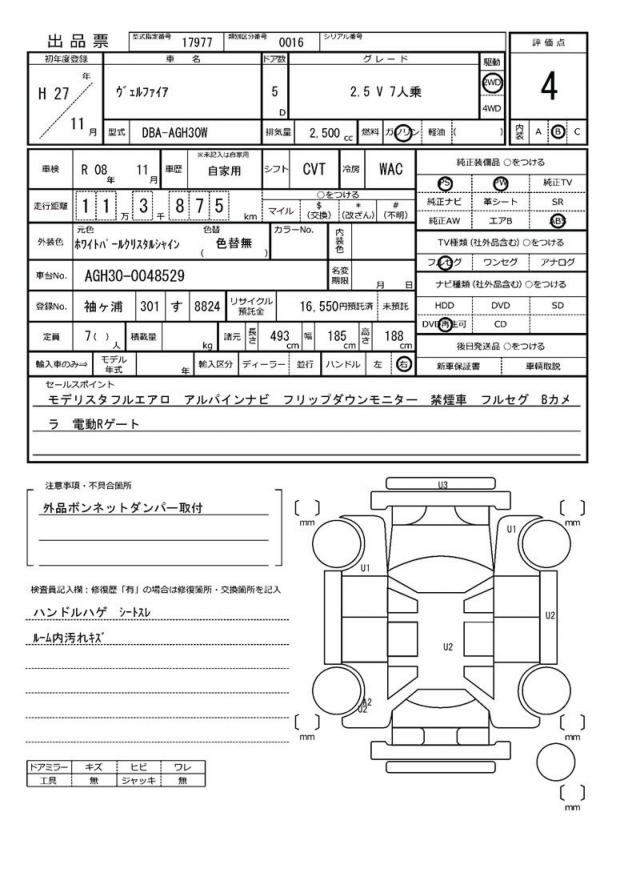 出品票 型式指定番号 17977 類別区分番号 0016 シリアル番号
評価点
4
内装 A B C
初年度登録 車名 ドア数 グレード 駆動
H 27 年 11 月 ヴェルファイア 5 D 2.5 V 7人乗 2WD 4WD
型式 DBA-AGH30W 排気量 2,500 cc 燃料 ガソリン 軽油 ( )
車検 R 08 年 11 月 車歴 ※未記入は自家用 自家用 シフト CVT 冷房 WAC
走行距離 1 1 万 3 千 8 7 5 km ○をつける
マイル $ (交換) * (改ざん) # (不明)
外装色 元色 ホワイトパールクリスタルシャイン 色替 ( 色替無 ) カラーNo. 内装色
車台No. AGH30-0048529 名変期限 月 日
登録No. 袖ヶ浦 301 す 8824 リサイクル預託金 16,550円預託済 未預託
定員 7( ) 人 積載量 kg 諸元 長さ 493 cm 幅 185 cm 高さ 188 cm
輸入車のみ⇒ モデル年式 年 輸入区分 ディーラー 並行 ハンドル 左 右
純正装備品 ○をつける
PS PW 純正TV
純正ナビ 革シート SR
純正AW エアB ABS
TV種類(社外品含む) ○をつける
フルセグ ワンセグ アナログ
ナビ種類(社外品含む) ○をつける
HDD DVD SD
DVD再生可 CD
後日発送品 ○をつける
新車保証書 車輌取説
セールスポイント
モデリスタフルエアロ アルパインナビ フリップダウンモニター 禁煙車 フルセグ Bカメ
ラ 電動Rゲート
注意事項・不具合箇所
外品ボンネットダンパー取付
検査員記入欄:修復歴「有」の場合は修復箇所・交換箇所を記入
ハンドルハゲ シートスレ
ルーム内汚れキズ
ドアミラー キズ ヒビ ワレ
工具 無 ジャッキ 無
U3
[ ] mm
[ ] mm
U1
U1
U2
U2
A2
U2
[ ] mm
[ ] mm
[ ] mm